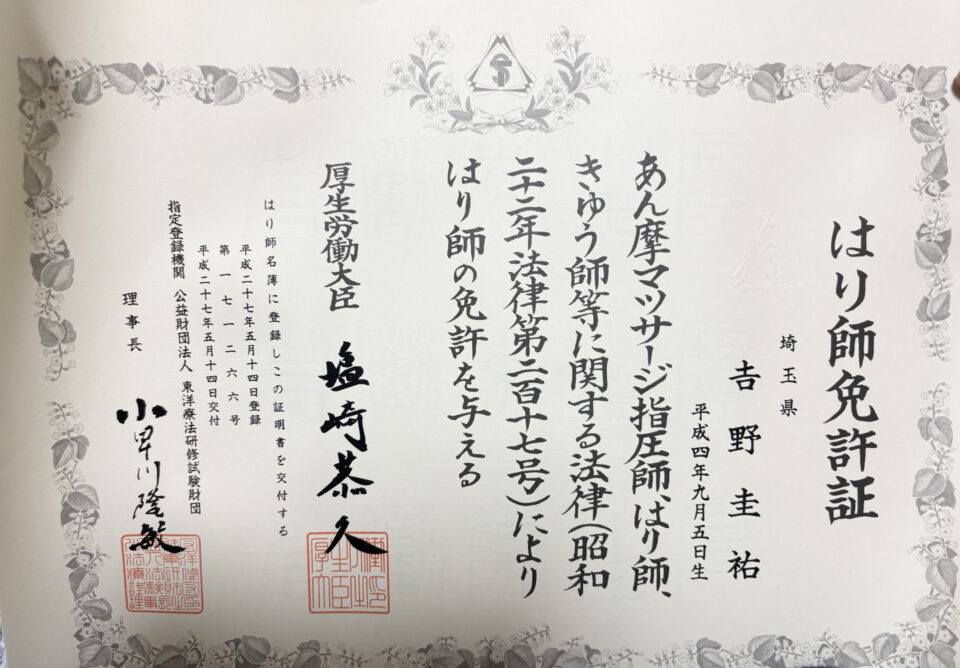 はり師免許証
埼玉県
𠮷野圭祐
平成四年九月五日生
あん摩マツサージ指圧師、はり師、
きゆう師等に関する法律(昭和
二十二年法律第二百十七号)により
はり師の免許を与える
厚生労働大臣 塩崎恭久
はり師名簿に登録しこの証明書を交付する
平成二十七年五月十四日登録
第一七一二六六号
平成二十七年五月十四日交付
指定登録機関 公益財団法人 東洋療法研修試験財団
理事長 小早川隆敏